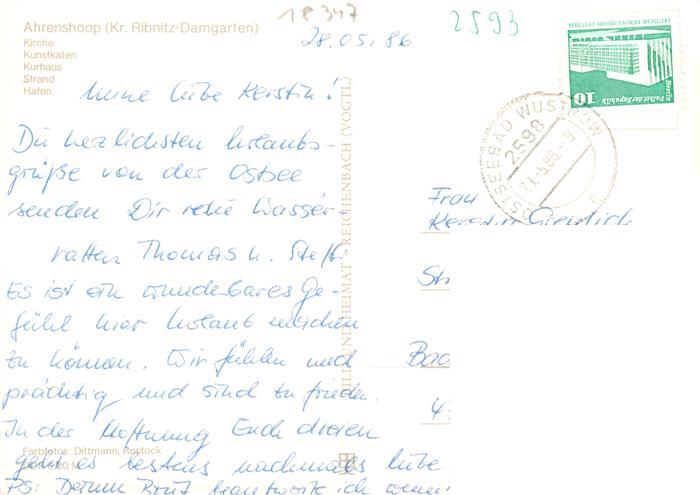 18347
2593
Ahrenshoop (Kr. Ribnitz-Damgarten)
Kirche
Kunstkaten
Kurhaus
Strand
Hafen
28.05.86
Meine liebe Kerstin!
Die herzlichsten Urlaubs-
grüße von der Ostsee
senden Dir die Wasser-
ratten Thomas u. Steffi.
Es ist ein wunderbares Ge-
fühl hier Urlaub machen
zu können. Wir fühlen uns
prächtig und sind zufrieden.
In der Hoffnung Euch dreien
geht es bestens nochmals liebe
PS: Deinen Brief beantworte ich wenn
Farbfotos: Dittmann, Rostock
BILD UND HEIMAT REICHENBACH (VOGTL)
DEUTSCHE DEMOKRATISCHE REPUBLIK
Palast der Republik
Berlin
10
OSTSEEBAD WUSTROW
2598
Frau
Kerstin
Str
Bad